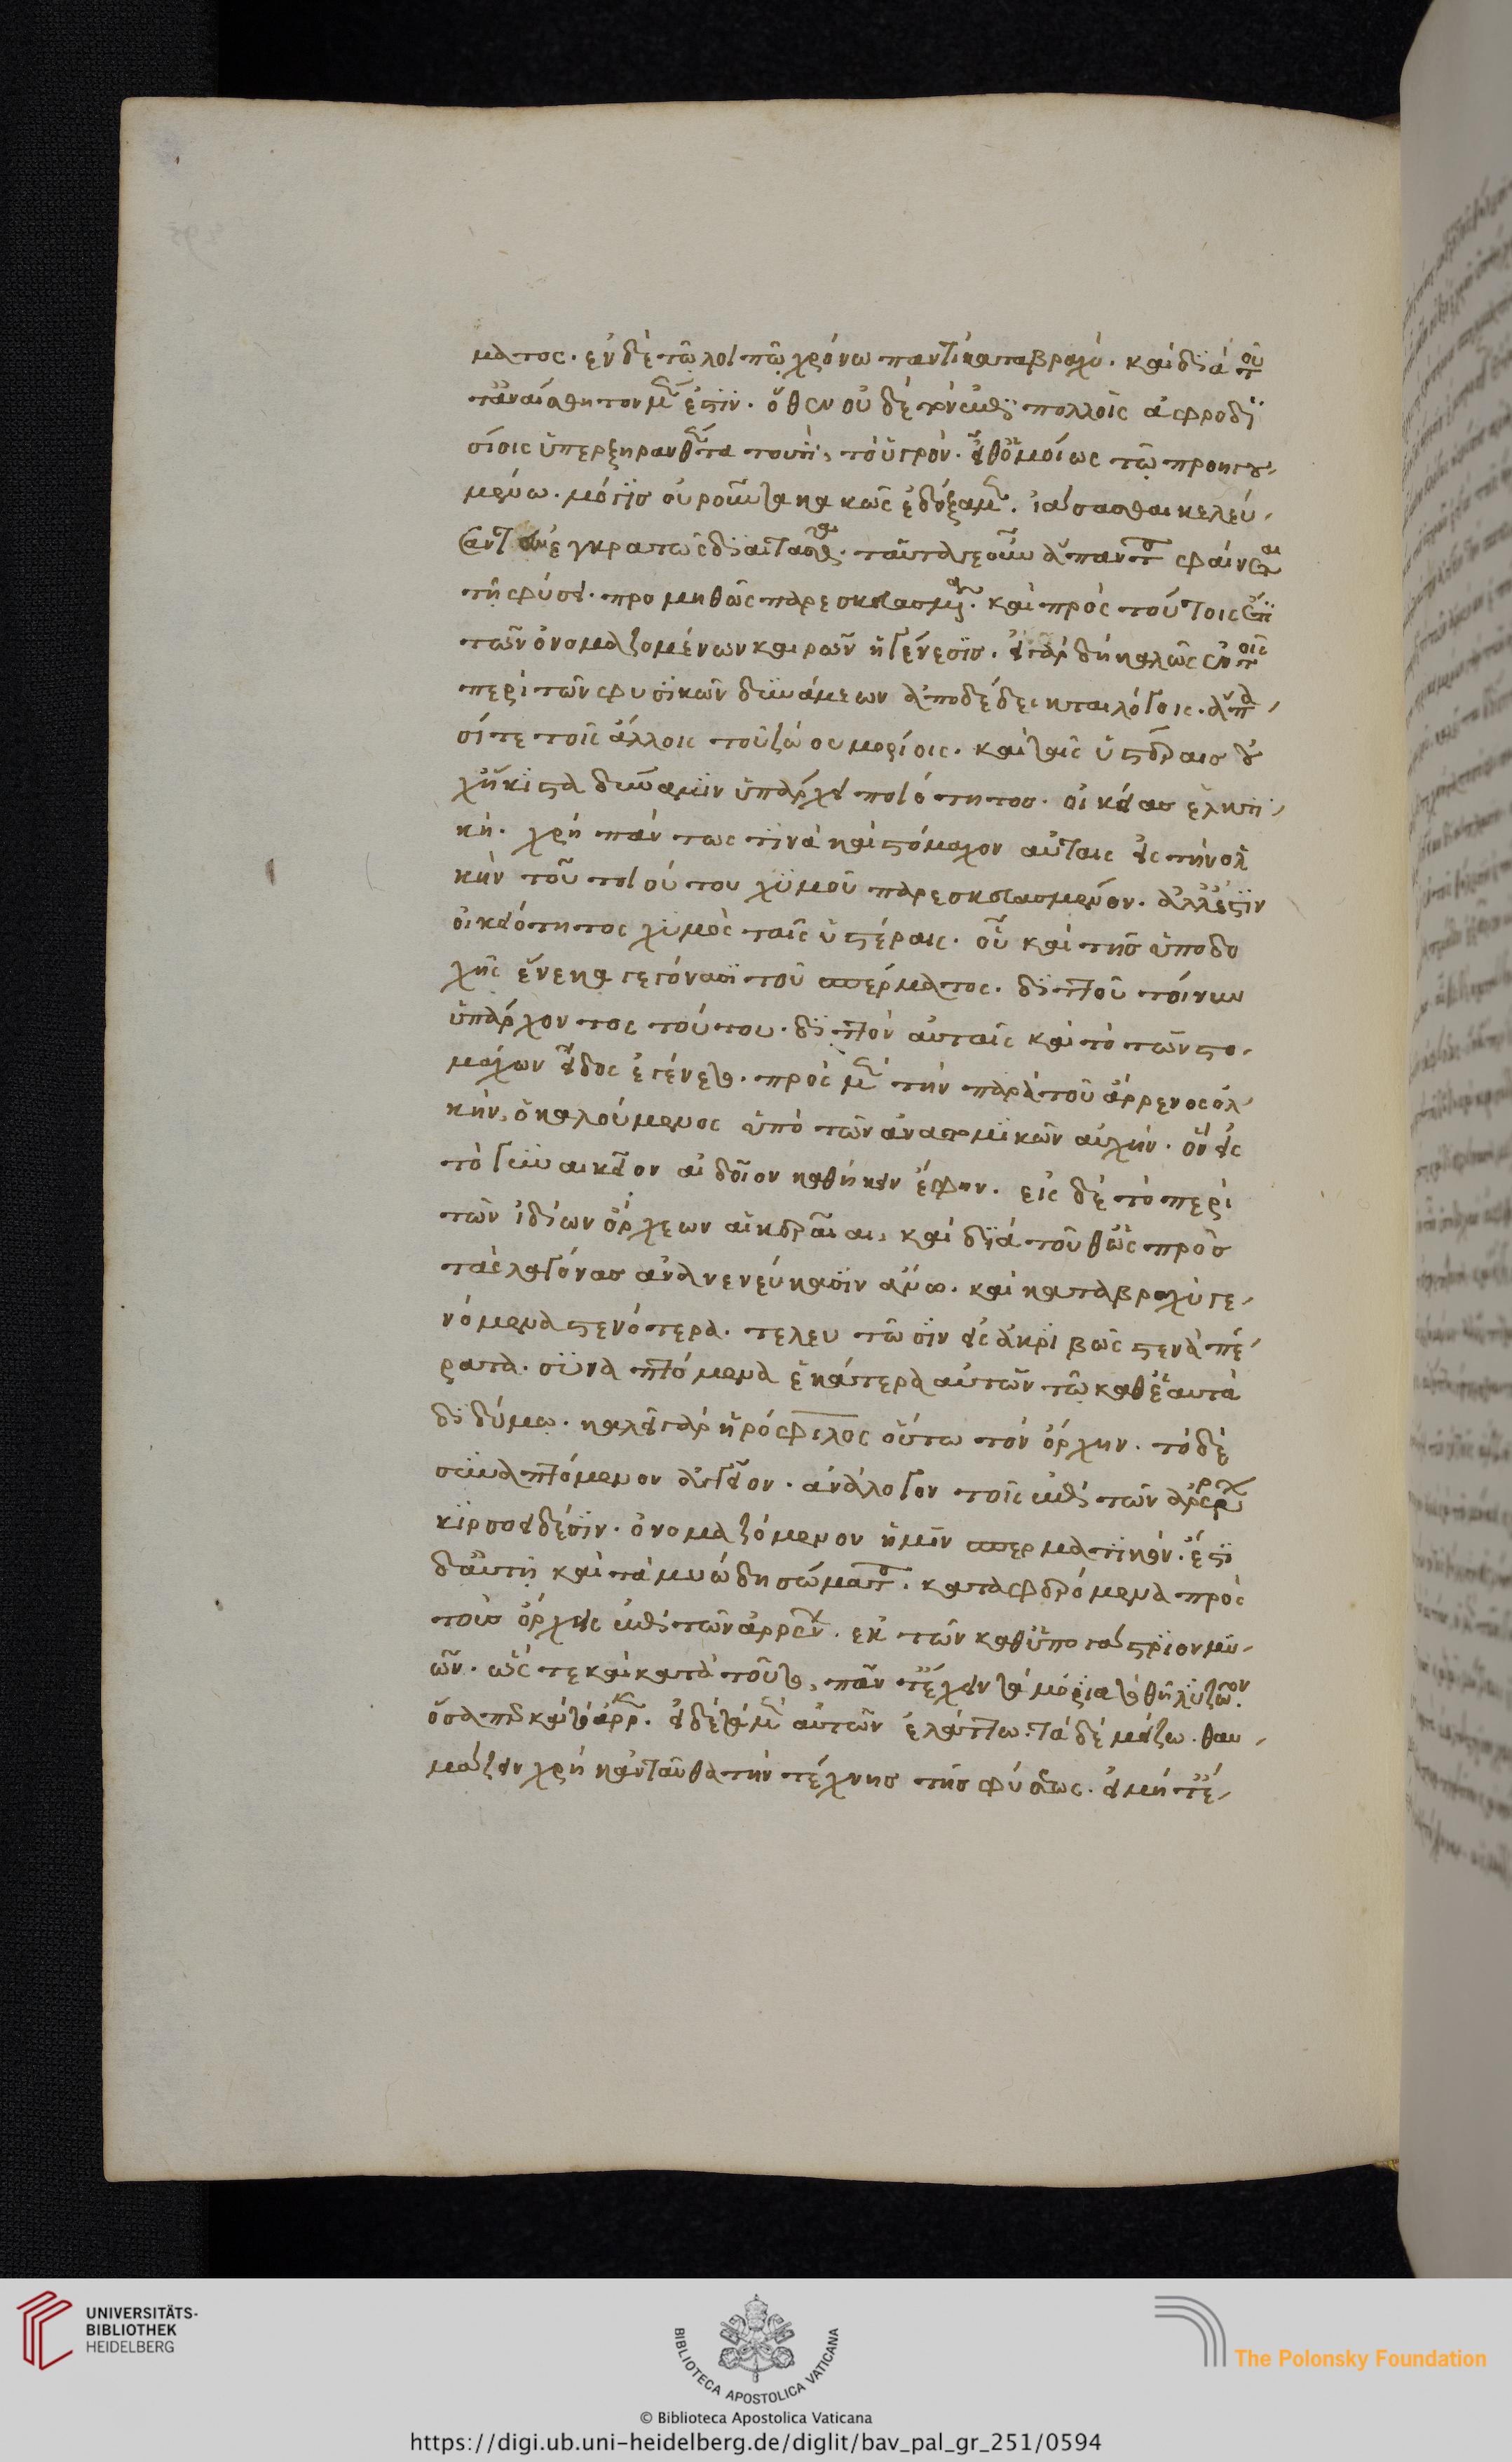 ματος. ἐν δὲ τῷ λοιπῷ χρόνῳ παντὶ κατα βραχύ. καὶ διὰ τοῦ
τ' ἀναίσθητον μὲν ἐστϊν. ὅθεν οὐδὲ τὴν ἐπὶ πολλοῖς ἀφροδϊ
σίοις ὑπερξηρανθέντα τουτὶ, τὸ ὑγρὸν. εἶθ' ὁμοίως τῷ προηγου
μένω. μόγις οὐροῦντα κακῶς ἐδόξαμεν. ἰάσασθαι κελεύ
σαντες ἐγκρατῶς διαιτᾶσθαι. ταῦτά τε οὖν ἅπαντα φαίνεται
τῇ φύσει. προμηθῶς παρεσκευασμένα. καὶ πρὸς τούτοις ἔτϊ
τῶν ὀνομαζομένων κεραιῶν ἡ γένεσϊς. εἰ γὰρ δὴ καλῶς ἐν τοῖς
περὶ τῶν φυσϊκῶν δυνάμεων ἀποδέδεικται λόγοις. ἅπα
σί τε τοῖς ἄλλοις τοῦ ζώου μορίοις. καὶ ταῖς ὑστέραις οὐ
χ' ἥκϊστα δύναμϊν ὑπάρχει ποιότητος. οἰκείας ἑλκτϊ
κή. χρὴ πάντως τϊνὰ καὶ στόμαχον αὐταῖς εἰς τὴν ὁλ
κὴν τοῦ τοιούτου χϋμοῦ παρεσκευασμένον. ἀλλ' ἔστϊν
οἰκειότητος χϋμὸς ταῖς ὑστέραις. οὗ καὶ τῆς ὑποδο
χῆς ἕνεκα γεγόνασϊ τοῦ σπέρματος. διττοῦ τοίνυν
ὑπάρχοντος τούτου. διττὸν αὐταῖς καὶ τὸ τῶν στο
μάχων εἶδος ἐγένετο. πρὸς μὲν τὴν παρὰ τοῦ ἄρρενος ὁλ
κὴν, ὁ καλούμενος ὑπὸ τῶν ἀνατομϊκῶν αὐχήν. ὃν εἰς
τὸ γυναικεῖον αἰδοῖον καθήκειν ἔφην. εἰς δὲ τὸ περὶ
τῶν ἰδίων ὄρχεων αἱ κεραῖαι, καὶ διὰ τοῦθ' ὡς πρὸς
τὰς λαγόνας ἀνανενεύκασϊν ἄνω. καὶ κατα βραχὺ γε
νόμενα στενότερα. τελευτῶσϊν εἰς ἀκρϊβῶς στενὰ πέ
ρατα. συναπτόμενα ἑκάτερα αὐτῶν τῷ καθ' ἑαυτὰ
διδύμῳ. καλεῖ γὰρ ἡρόφϊλος οὕτω τὸν ὄρχην. τὸ δὲ
συναπτόμενον ἀγγεῖον. ἀνάλογον τοῖς ἐπὶ τῶν ἀρρένων
κϊρσοειδέσϊν. ὀνομαζόμενον ἡμῖν σπερματϊκόν. ἔστϊ
δ' αὐτῇ καὶ τὰ μυώδη σώματα. καταφερόμενα πρὸς
τοὺς ὄρχεις ἐπὶ τῶν ἀρρένων. ἐκ τῶν καθ' ὑπογάστριον μϋ
ῶν. ὥς τε καὶ κατὰ τοῦτο, πάντ' ἔχειν τὰ μόρϊα τὸ θῆλυ ζῷον.
ὅσα περ καὶ τὸ ἄρρεν. εἰ δὲ τὰ μὲν αὐτῶν ἐλάττω. τὰ δὲ μείζω. θαυ
μάζειν χρὴ κἀνταῦθα τὴν τέχνης τῆς φύσεως. εἰ μήτε
UNIVERSITÄTS-
BIBLIOTHEK
HEIDELBERG
BIBLIOTECA APOSTOLICA VATICANA
The Polonsky Foundation
© Biblioteca Apostolica Vaticana
https://digi.ub.uni-heidelberg.de/diglit/bav_pal_gr_251/0594